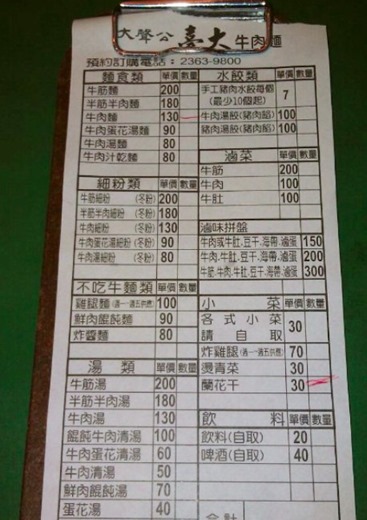 大聲公 喜大 牛肉麵
預約訂購電話：2363-9800
麵食類 單價 數量
牛筋麵 200
半筋半肉麵 180
牛肉麵 130
牛肉蛋花湯麵 90
牛肉湯麵 80
牛肉汁乾麵 80
細粉類 單價 數量
牛筋細粉 (冬粉) 200
半筋半肉細粉 (冬粉) 180
牛肉細粉 (冬粉) 130
牛肉蛋花湯細粉 (冬粉) 90
牛肉湯細粉 (冬粉) 80
不吃牛麵類 單價 數量
雞腿麵 (週一~週五供應) 100
鮮肉餛飩麵 90
炸醬麵 80
湯類 單價 數量
牛筋湯 200
半筋半肉湯 180
牛肉湯 130
餛飩牛肉清湯 100
牛肉蛋花清湯 60
牛肉清湯 50
鮮肉餛飩湯 70
蛋花湯 40
水餃類 單價 數量
手工豬肉水餃每個 7
(最少10個起)
牛肉湯餃(豬肉餡) 100
豬肉湯餃(豬肉餡) 100
滷菜 單價 數量
牛筋 200
牛肉 100
牛肚 100
滷味拼盤
牛肉或牛肚.豆干.海帶.滷蛋 150
牛肉.牛肚.豆干.海帶.滷蛋 200
牛筋.牛肉.牛肚.豆干.海帶.滷蛋 300
小菜 單價 數量
各式小菜 30
請自取
炸雞腿 (週一~週五供應) 70
燙青菜 30
蘭花干 30
飲料 單價 數量
飲料(自取) 20
啤酒(自取) 40
合計